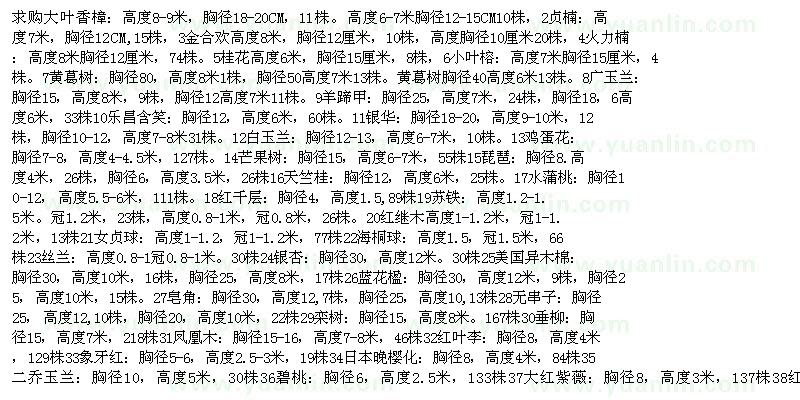 求购大叶香樟：高度8-9米，胸径18-20CM，11株。高度6-7米胸径12-15CM10株，2贞楠：高
度7米，胸径12CM,15株，3金合欢高度8米，胸径12厘米，10株，高度胸径10厘米20株，4火力楠
：高度8米胸径12厘米，74株。5桂花高度6米，胸径15厘米，8株，6小叶榕：高度7米胸径15厘米，4
株。7黄葛树：胸径80，高度8米1株，胸径50高度7米13株。黄葛树胸径40高度6米13株。8广玉兰：
胸径15，高度8米，9株，胸径12高度7米11株。9羊蹄甲：胸径25，高度7米，24株，胸径18，6高
度6米，33株10乐昌含笑：胸径12，高度6米，60株。11银华：胸径18-20，高度9-10米，12
株，胸径10-12，高度7-8米31株。12白玉兰：胸径12-13，高度6-7米，10株。13鸡蛋花：
胸径7-8，高度4-4.5米，127株。14芒果树：胸径15，高度6-7米，55株15琵琶：胸径8.高
度4米，26株，胸径6，高度3.5米，26株16天竺桂：胸径12，高度6米，25株。17水蒲桃：胸径1
0-12，高度5.5-6米，111株。18红千层：胸径4，高度1.5,89株19苏铁：高度1.2-1.
5米。冠1.2米，23株，高度0.8-1米，冠0.8米，26株。20红继木高度1-1.2米，冠1-1.
2米，13株21女贞球：高度1-1.2，冠1-1.2米，77株22海桐球：高度1.5，冠1.5米，66
株23丝兰：高度0.8-1冠0.8-1米。30株24银杏：胸径30，高度12米。30株25美国异木棉：
胸径30，高度10米，16株，胸径25，高度8米，17株26蓝花楹：胸径30，高度12米，9株，胸径2
5，高度10米，15株。27皂角：胸径30，高度12,7株，胸径25，高度10,13株28无串子：胸径
25，高度12,10株，胸径20，高度10米，22株29栾树：胸径15，高度8米。167株30垂柳：胸
径15，高度7米，218株31凤凰木：胸径15-16，高度7-8米，46株32红叶李：胸径8，高度4米
，129株33象牙红：胸径5-6，高度2.5-3米，19株34日本晚樱化：胸径8，高度4米，84株35
二乔玉兰：胸径10，高度5米，30株36碧桃：胸径6，高度2.5米，133株37大红紫薇：胸径8，高度3米，137株38红